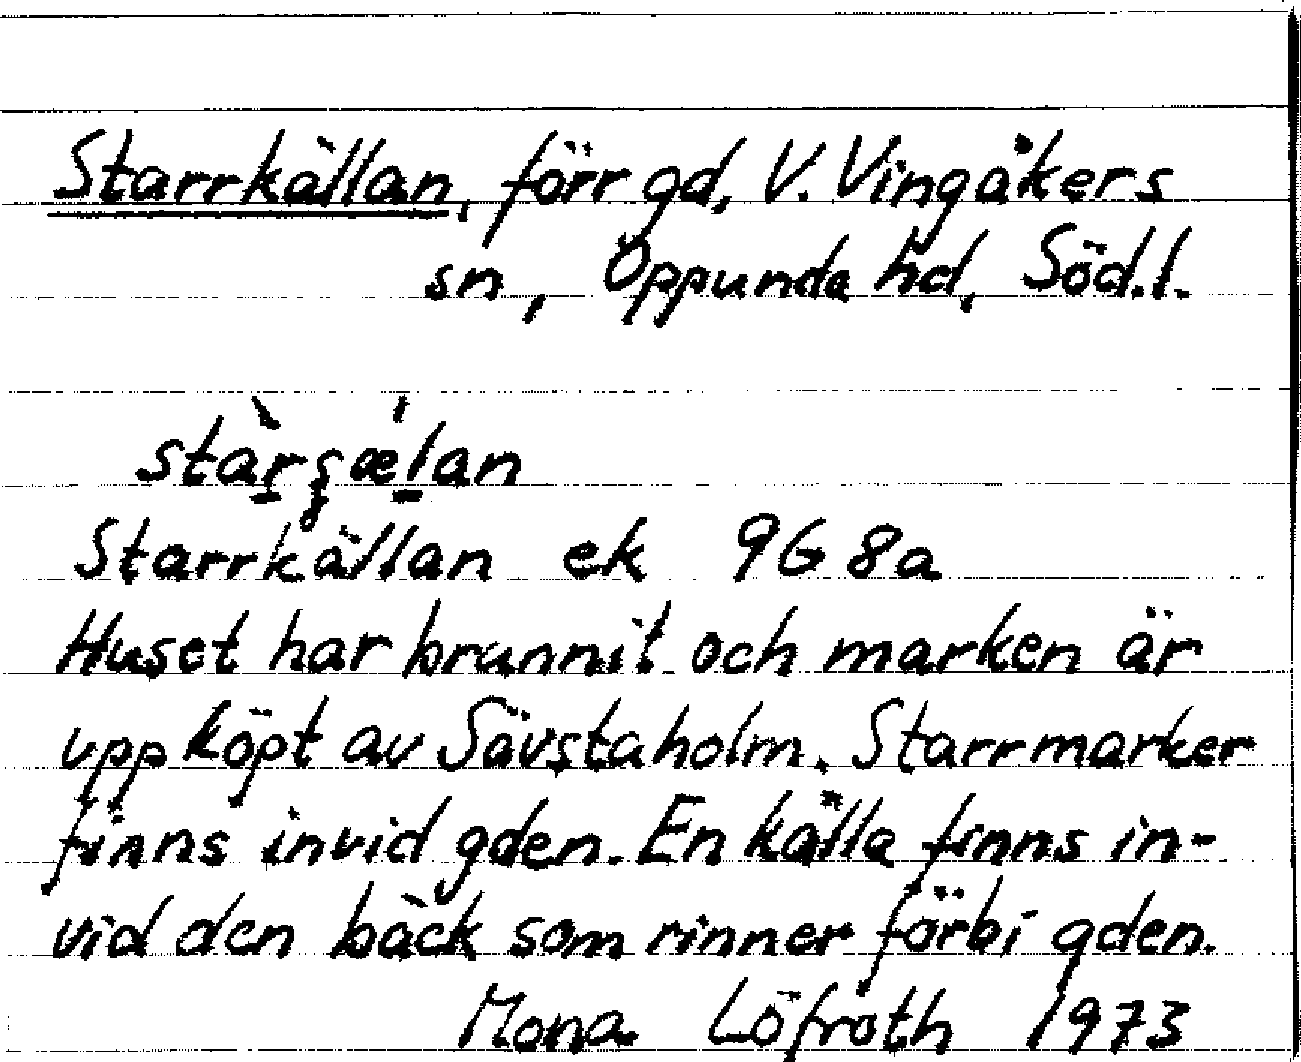 Starrkällan, förr gd, V. Vingåkers
sn, Oppunda hd, Söd.l.
stàr̠ʂǽl̠an
Starrkällan ek 9G 8a
Huset har brunnit och marken är
uppköpt av Sävstaholm. Starrmarker
finns invid gden. En källa finns in-
vid den bäck som rinner förbi gden.
Mona Löfroth 1973